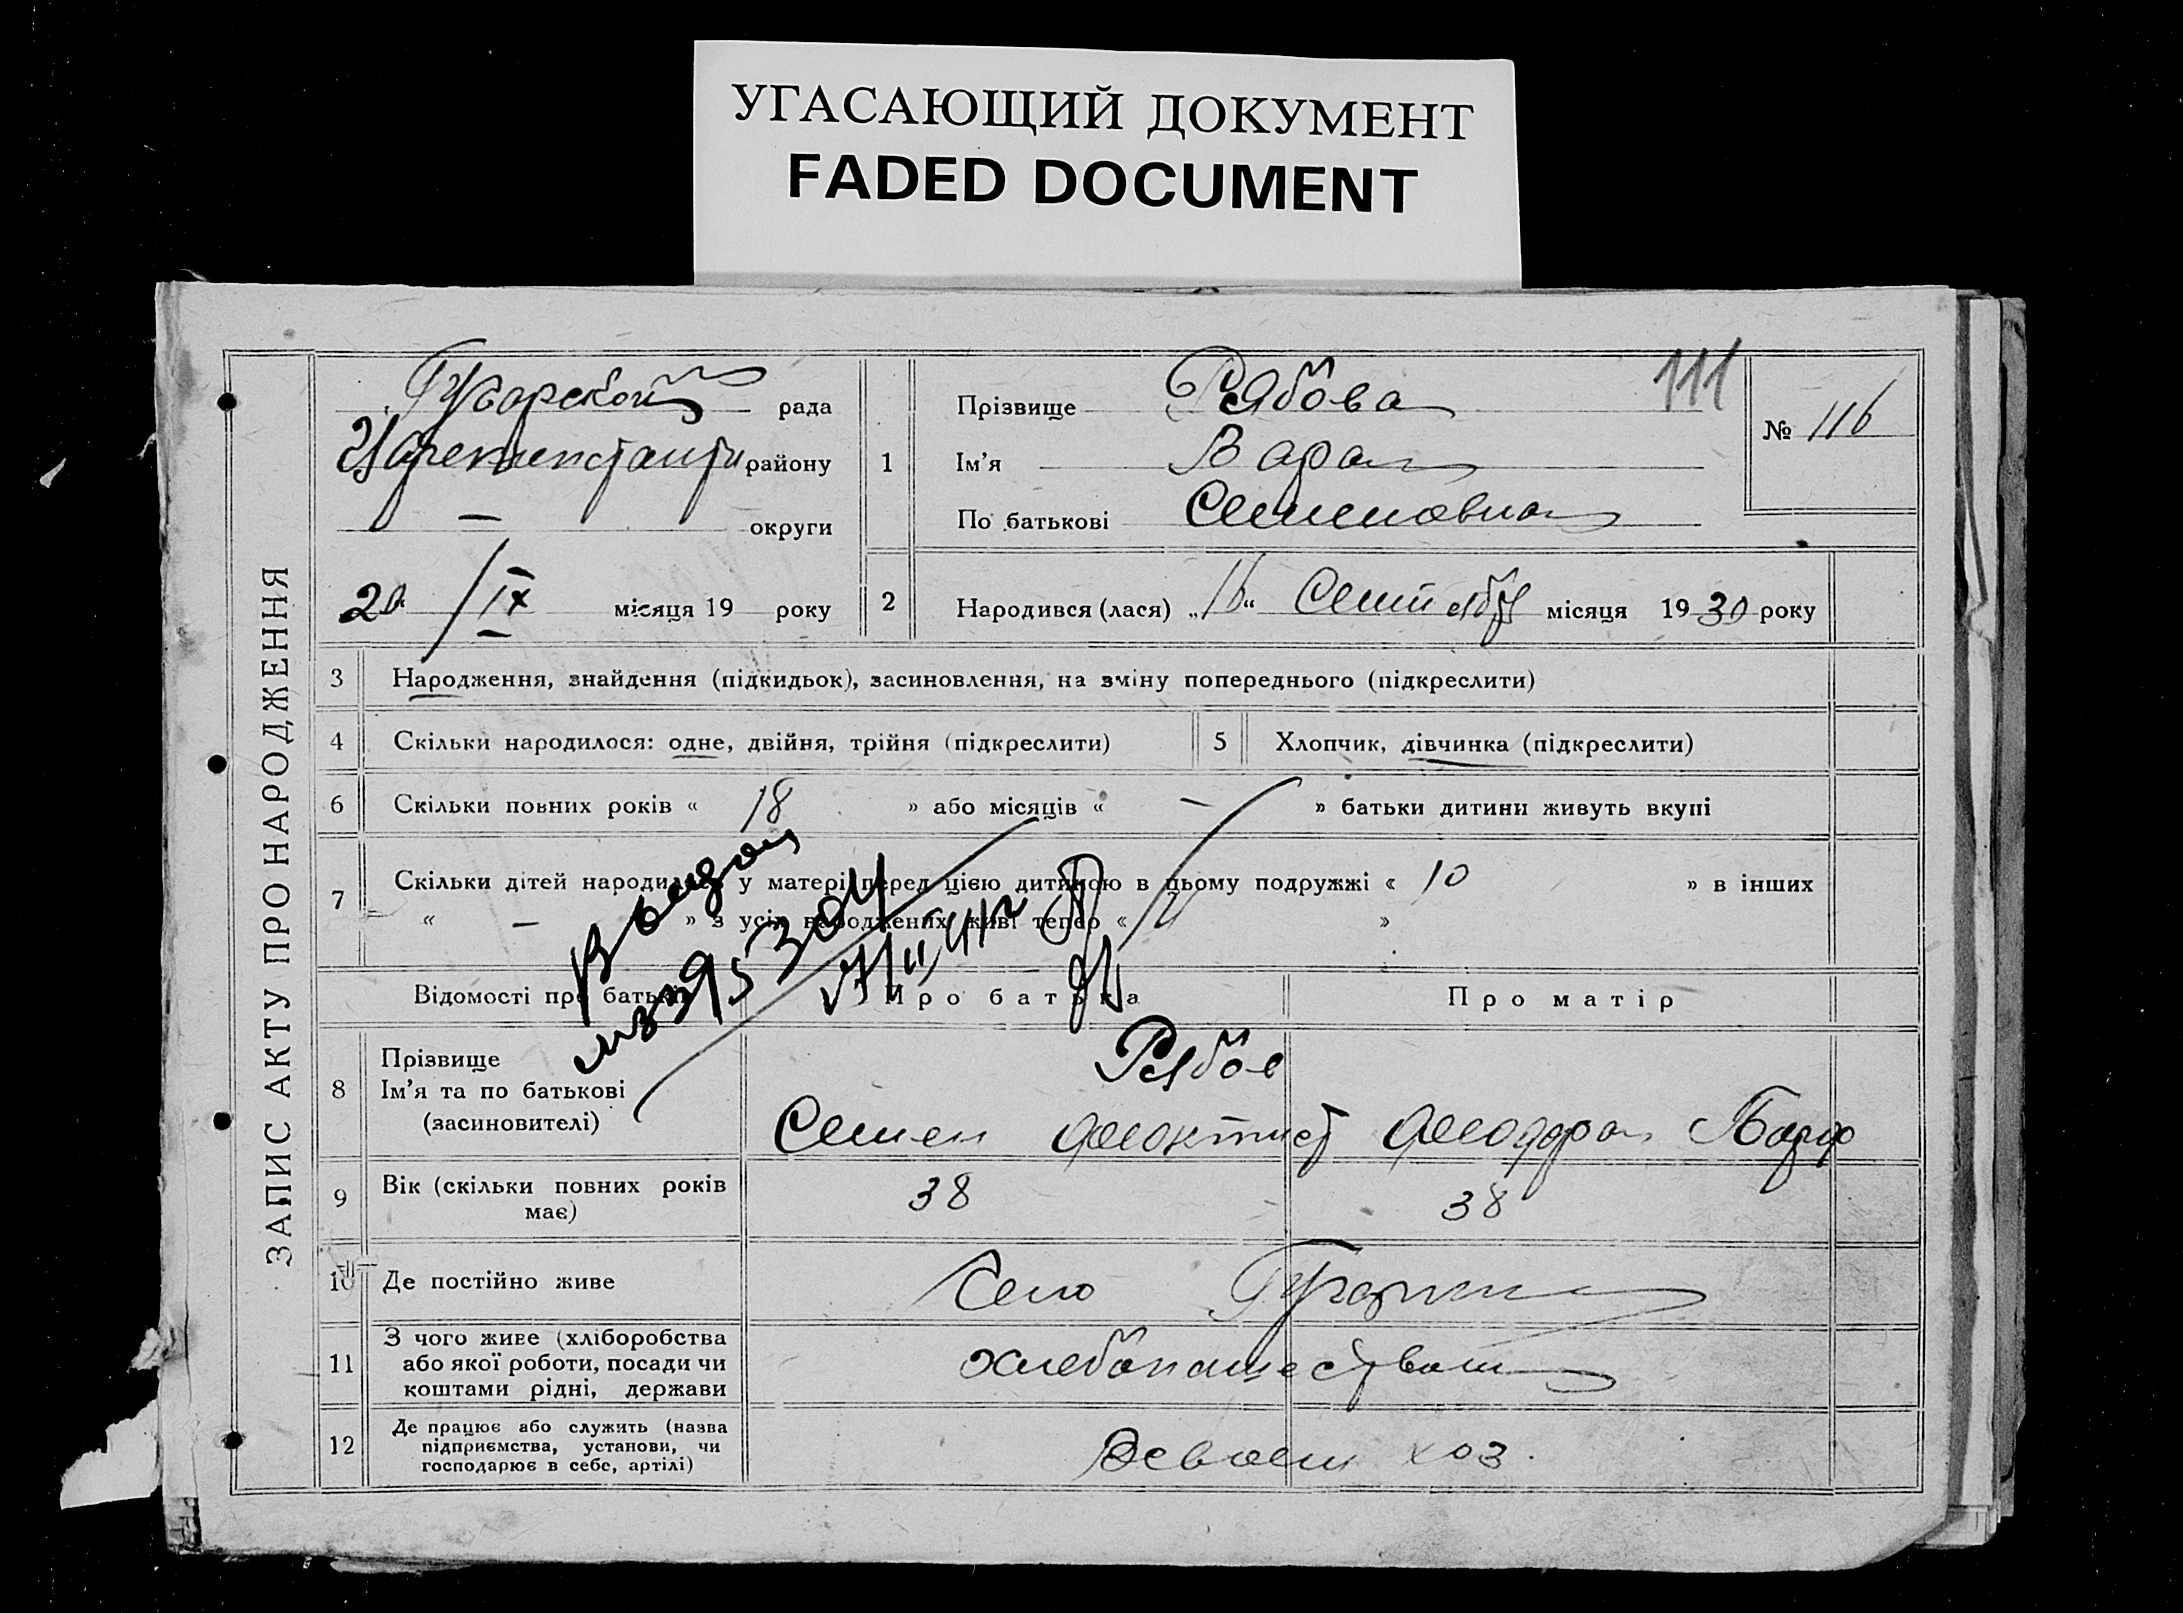 УГАСАЮЩИЙ ДОКУМЕНТ
FADED DOCUMENT
ЗАПИС АКТУ ПРО НАРОДЖЕННЯ
рада
району
— округи
20/IX місяця 19 року
111
1 Прізвище Рябова
Ім'я Вара
По батькові Семеновна
№ 116
2 Народився (лася) „16“ Сентябр місяця 1930 року
3 Народження, знайдення (підкидьок), засиновлення, на зміну попереднього (підкреслити)
4 Скільки народилося: одне, двійня, трійня (підкреслити)
5 Хлопчик, дівчинка (підкреслити)
6 Скільки повних років « 18 » або місяців « — » батьки дитини живуть вкупі
7 Скільки дітей народилося у матері перед цією дитиною в цьому подружжі « 10 » в інших
« — » з усіх народжених живі тепер « »
Відомості про батьків
Про батька
Про матір
8 Прізвище
Ім'я та по батькові
(засиновителі)
Рябов
Семен Феоктист
Феодора
9 Вік (скільки повних років
має)
38
38
10 Де постійно живе
Село
11 З чого живе (хліборобства
або якої роботи, посади чи
коштами рідні, держави
хлебопашеством
12 Де працює або служить (назва
підприємства, установи, чи
господарює в себе, артілі)
в своем хоз.